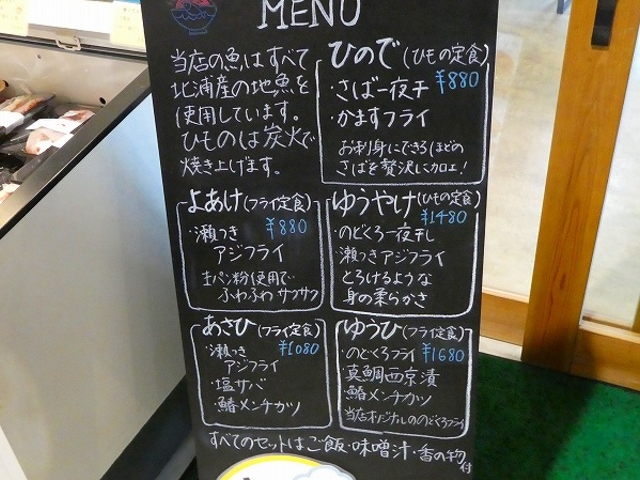 MENU
当店の魚はすべて
北浦産の地魚を
使用しています。
ひものは炭火で
焼き上げます。
ひので(ひもの定食)
・さば一夜干 ¥880
・かますフライ
お刺身にできるほどの
さばを贅沢にカロエ!
よあけ(フライ定食)
・瀬つき ¥880
アジフライ
生パン粉使用で
ふわふわ サクサク
ゆうやけ(ひもの定食)
¥1480
・のどぐろ一夜干し
・瀬つきアジフライ
とろけるような
身の柔らかさ
あさひ(フライ定食)
・瀬つき ¥1080
アジフライ
・塩サバ
・鰆メンチカツ
ゆうひ(フライ定食)
・のどぐろフライ ¥1680
・真鯛西京漬
・鰆メンチカツ
当店オリジナルののどぐろフライ
すべてのセットはご飯・味噌汁・香の物付